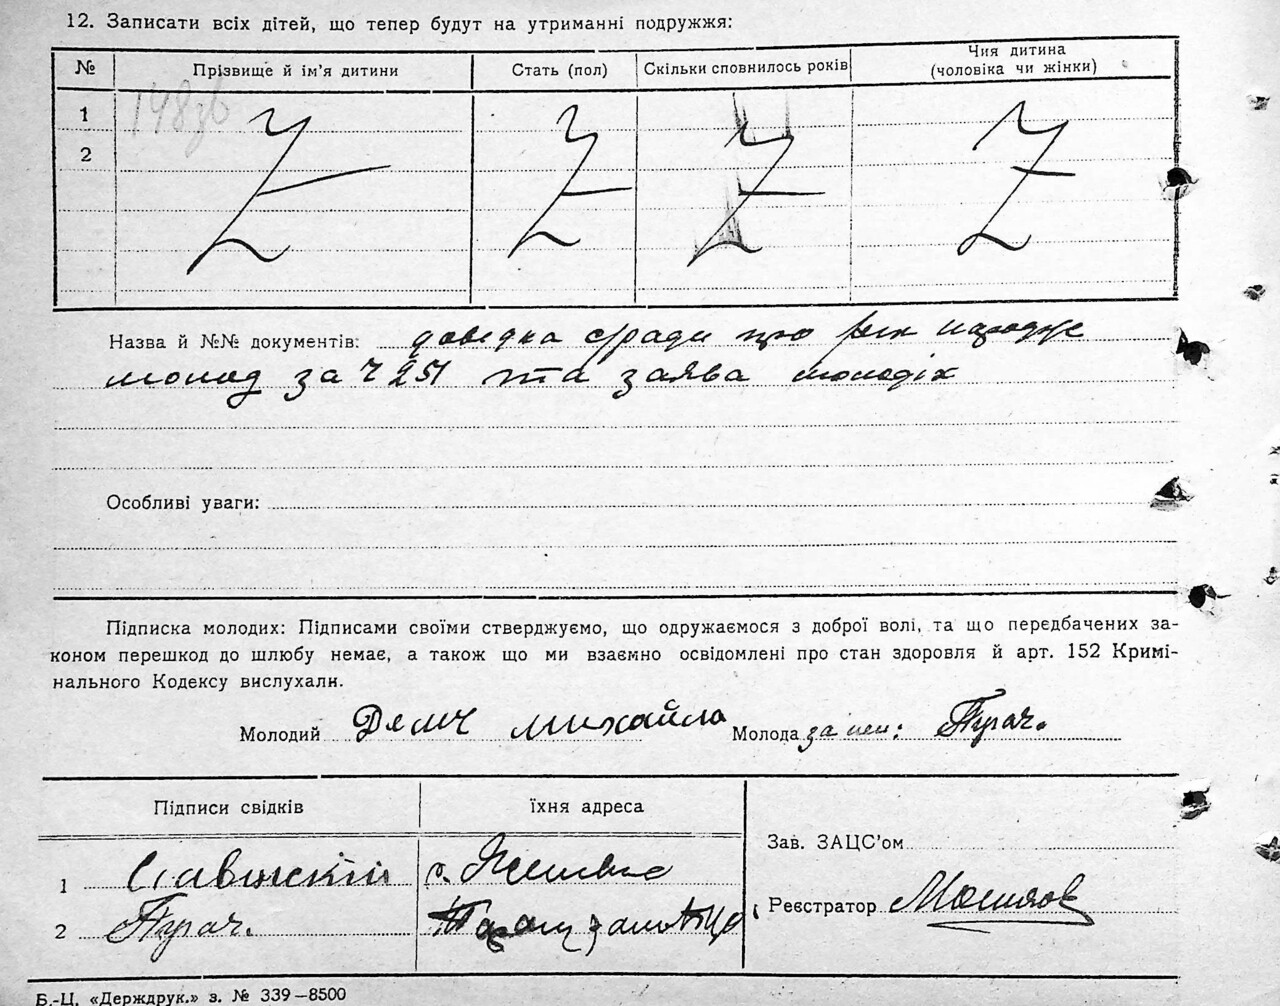 12. Записати всіх дітей, що тепер будут на утриманні подружжя:
№ Прізвище й ім'я дитини Стать (пол) Скільки сповнилось років Чия дитина
(чоловіка чи жінки)
1
2
Назва й №№ документів: довідка с/ради про рік народже
молод за Ч 251 та заява молодіх
Особливі уваги:
Підписка молодих: Підписами своїми стверджуємо, що одружаємося з доброї волі, та що передбачених за-
коном перешкод до шлюбу немає, а також що ми взаємно освідомлені про стан здоровля й арт. 152 Кримі-
нального Кодексу вислухали.
Молодий Михайло Молода за неп: Пугач.
Підписи свідків їхня адреса
Зав. ЗАЦС'ом
1 Савицкій с.
2 Пугач.
Реєстратор
Б.-Ц. «Держдрук.» з. № 339—8500